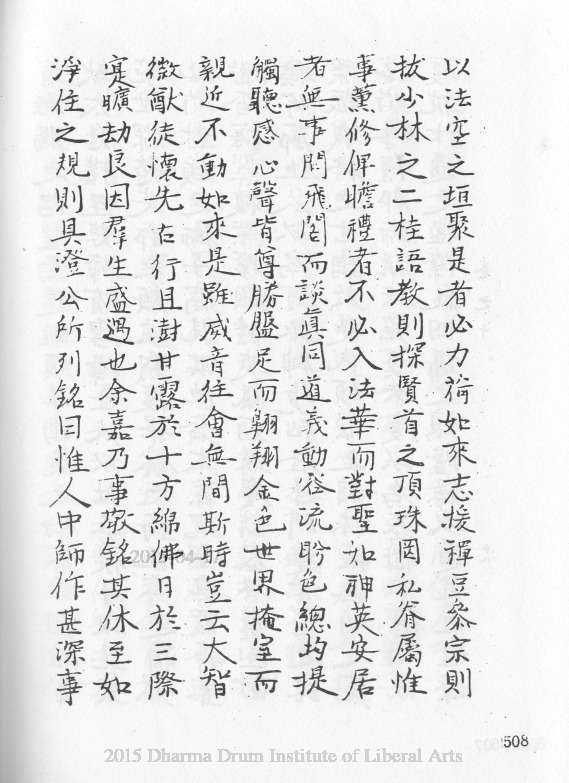 以法空之垣聚是者必力荷如來志援禪豆叅宗則
拔少林之二桂語教則探賢首之頂珠罔私眷屬惟
事薰修俾瞻禮者不必入法華而對聖如神英安居
者無事問飛閣而談眞同道義動容流盼色總均提
觸聽感心聲皆尊勝盤足而翱翔金色世界掩室而
親近不動如來是雖威音往會無間斯時豈云大智
微猷徒懷先右行且澍甘露於十方綿佛日於三際
寔曠劫良因羣生盛遇也余嘉乃事敬銘其休至如
淨住之規則具澄公所列銘曰惟人中師作甚深事
508
2015 Dharma Drum Institute of Liberal Arts